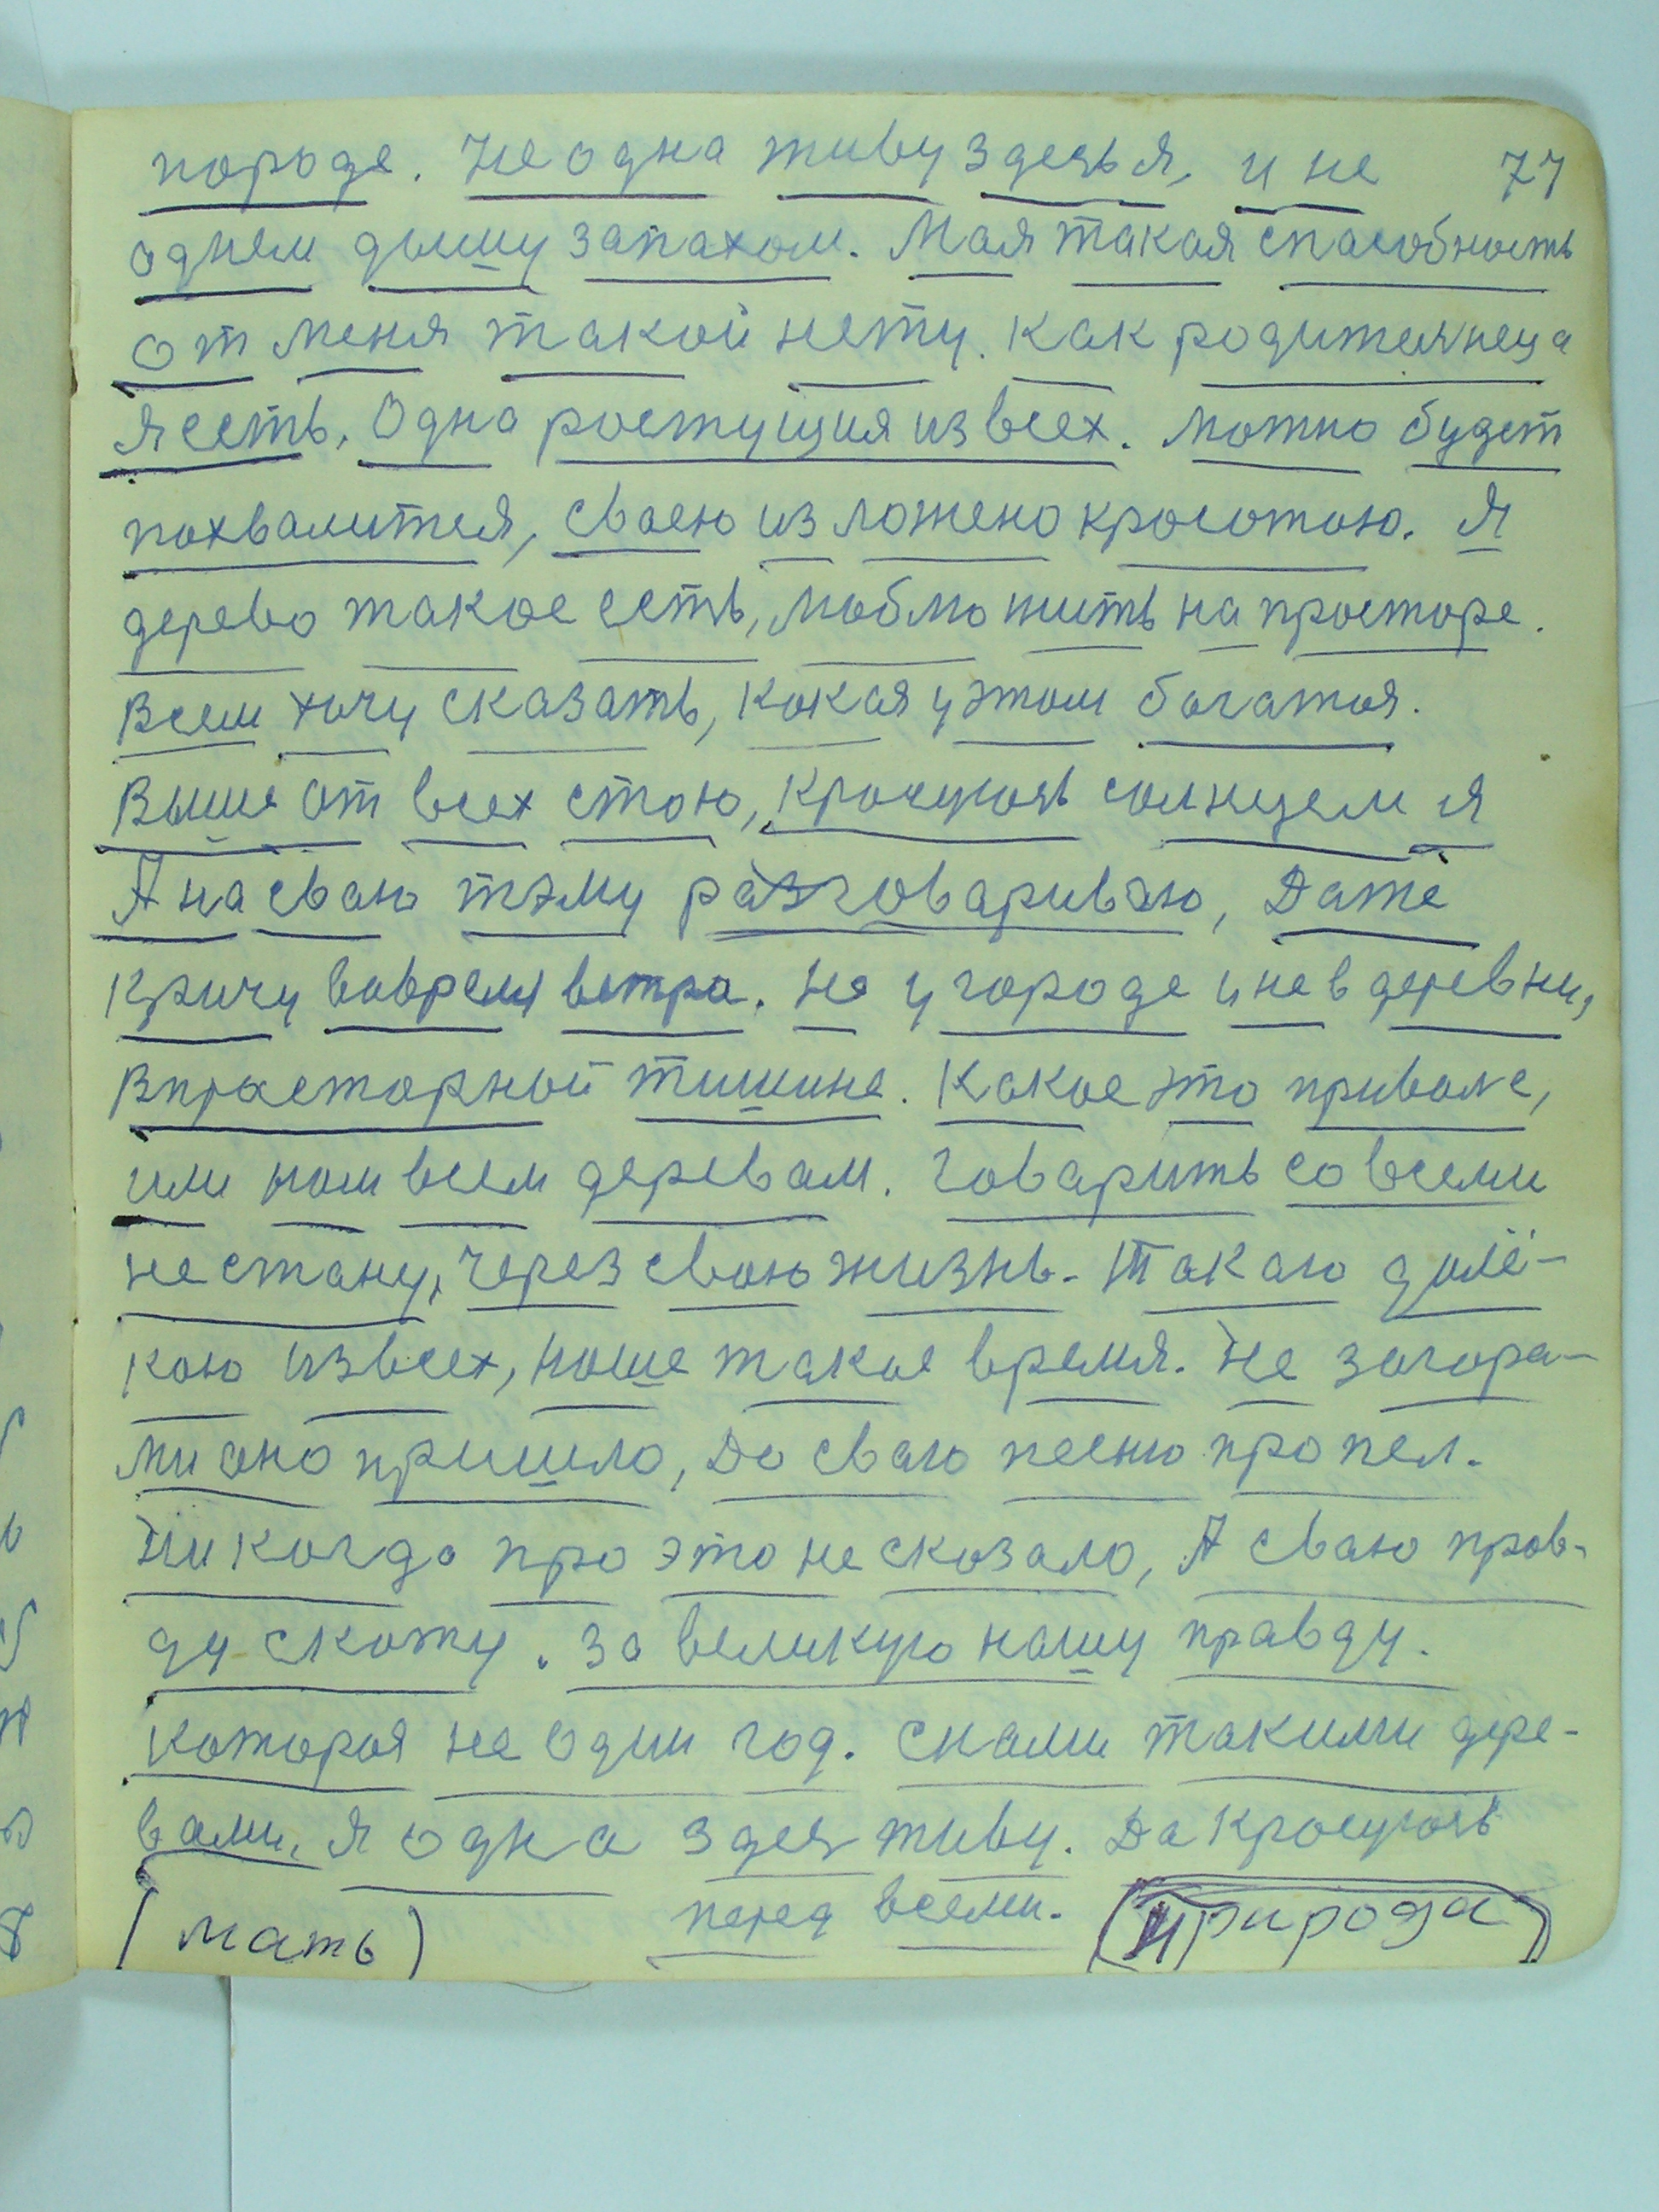 породе. Не одна живу здесь я, и не 77
однем дышу запахом. Мая такая спасобность
от меня такой нету. Как родителнеца
я есть, Одна ростущия из всех. Можно будет
похвалится, сваею из ложено кросотою. Я
дерево такое есть, люблю жить на просторе.
Всем хочу сказать, кокая у этом богатоя.
Выше от всех стою, кросуюсь солнцем я
А на сваю тэму разговариваю, Даже
кричу вовремя ветра. Не у городе и не в деревни,
в прасторной тишине. Какое это приволе,
или ном всем деревам. Говарить со всеми
не стану, через свою жизнь. Такаю долё-
кою из всех, ноше такое время. Не загора-
ми оно пришло, До сваю песню пропел.
Никогда про это не сказало, А сваю прав-
ду скожу. За великую нашу правду.
Которая не один год. Снами такими дере-
вами, я одна здез живу. Да кросуюсь
перед всеми.
(мать) (Природа)